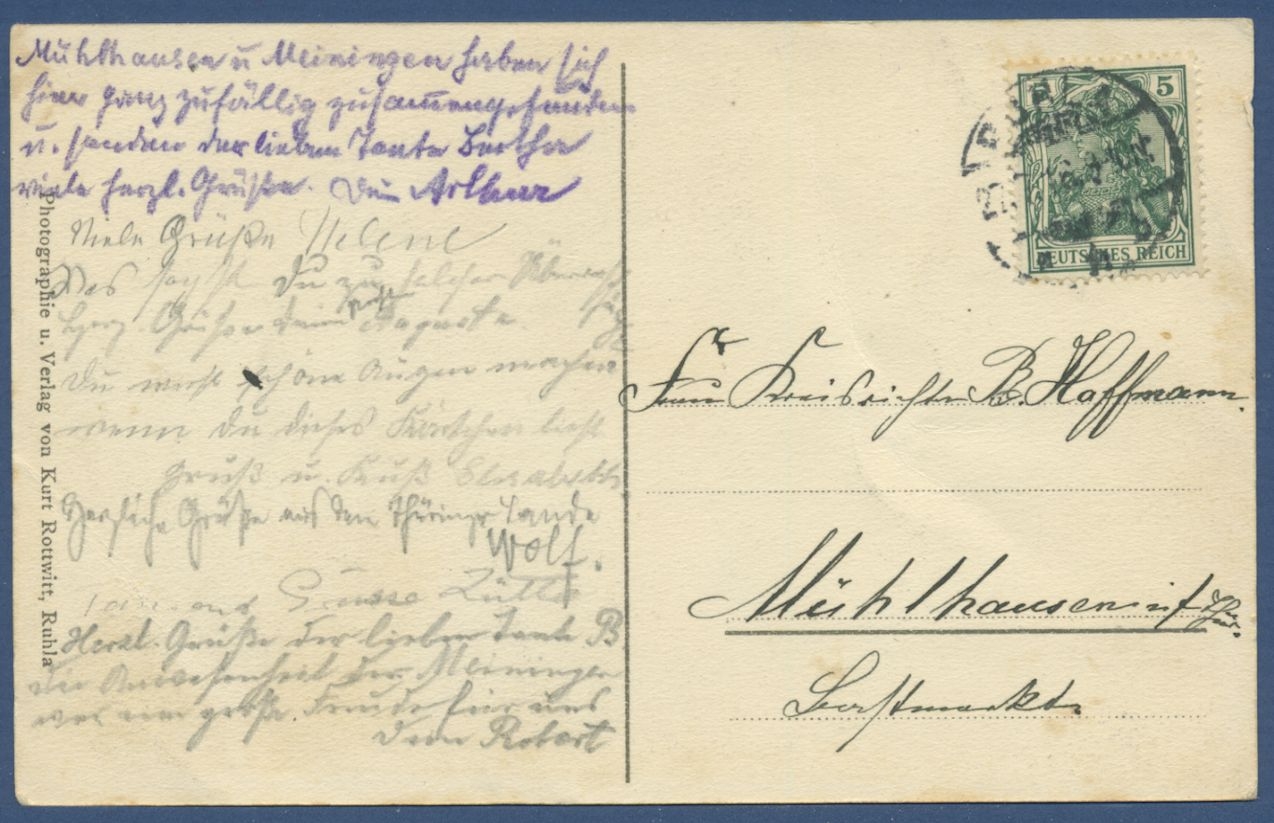 Mühlhausen u Meiningen haben sich
hier ganz zufällig zusammengefunden
u. senden der lieben Tante Bertha
viele herzl. Grüße. Dein Arthur
Viele Grüße Helene
Was sagst Du zu solcher
Herz. Grüße deine Auguste
Du wirst schöne Augen machen
wenn du dieses Kärtchen liest
Gruß u. Kuß Elisabeth
Herzliche Grüße aus dem Thüringer Lande
Wolf.
Tausend Grüsse
Herzl. Grüße der lieben Tante B
die Anwesenheit der Meininger
war eine große Freude für uns
Dein Robert
Photographie u. Verlag von Kurt Rottwitt, Ruhla
5
DEUTSCHES REICH
Frau Kreisrichter B. Hoffmann
Mühlhausen i/Thür.